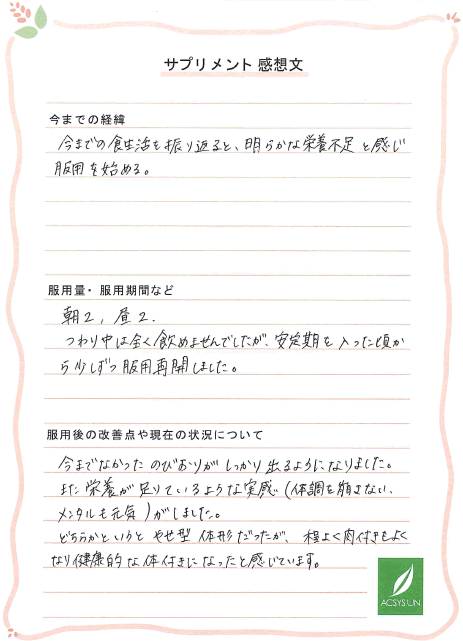 サプリメント 感想文
今までの経緯
今までの食生活を振り返ると、明らかな栄養不足と感じ
服用を始める。
服用量・服用期間など
朝2, 昼2.
つわり中は全く飲めませんでしたが、安定期を入った頃か
ら少しずつ服用再開しました。
服用後の改善点や現在の状況について
今までなかったのびおりがしっかり出るようになりました。
また栄養が足りているような実感(体調を崩さない、
メンタルも元気)がしました。
どちらかというとやせ型体形だったが、程よく肉付きもよく
なり健康的な体付きになったと感じています。
ACSYSUN